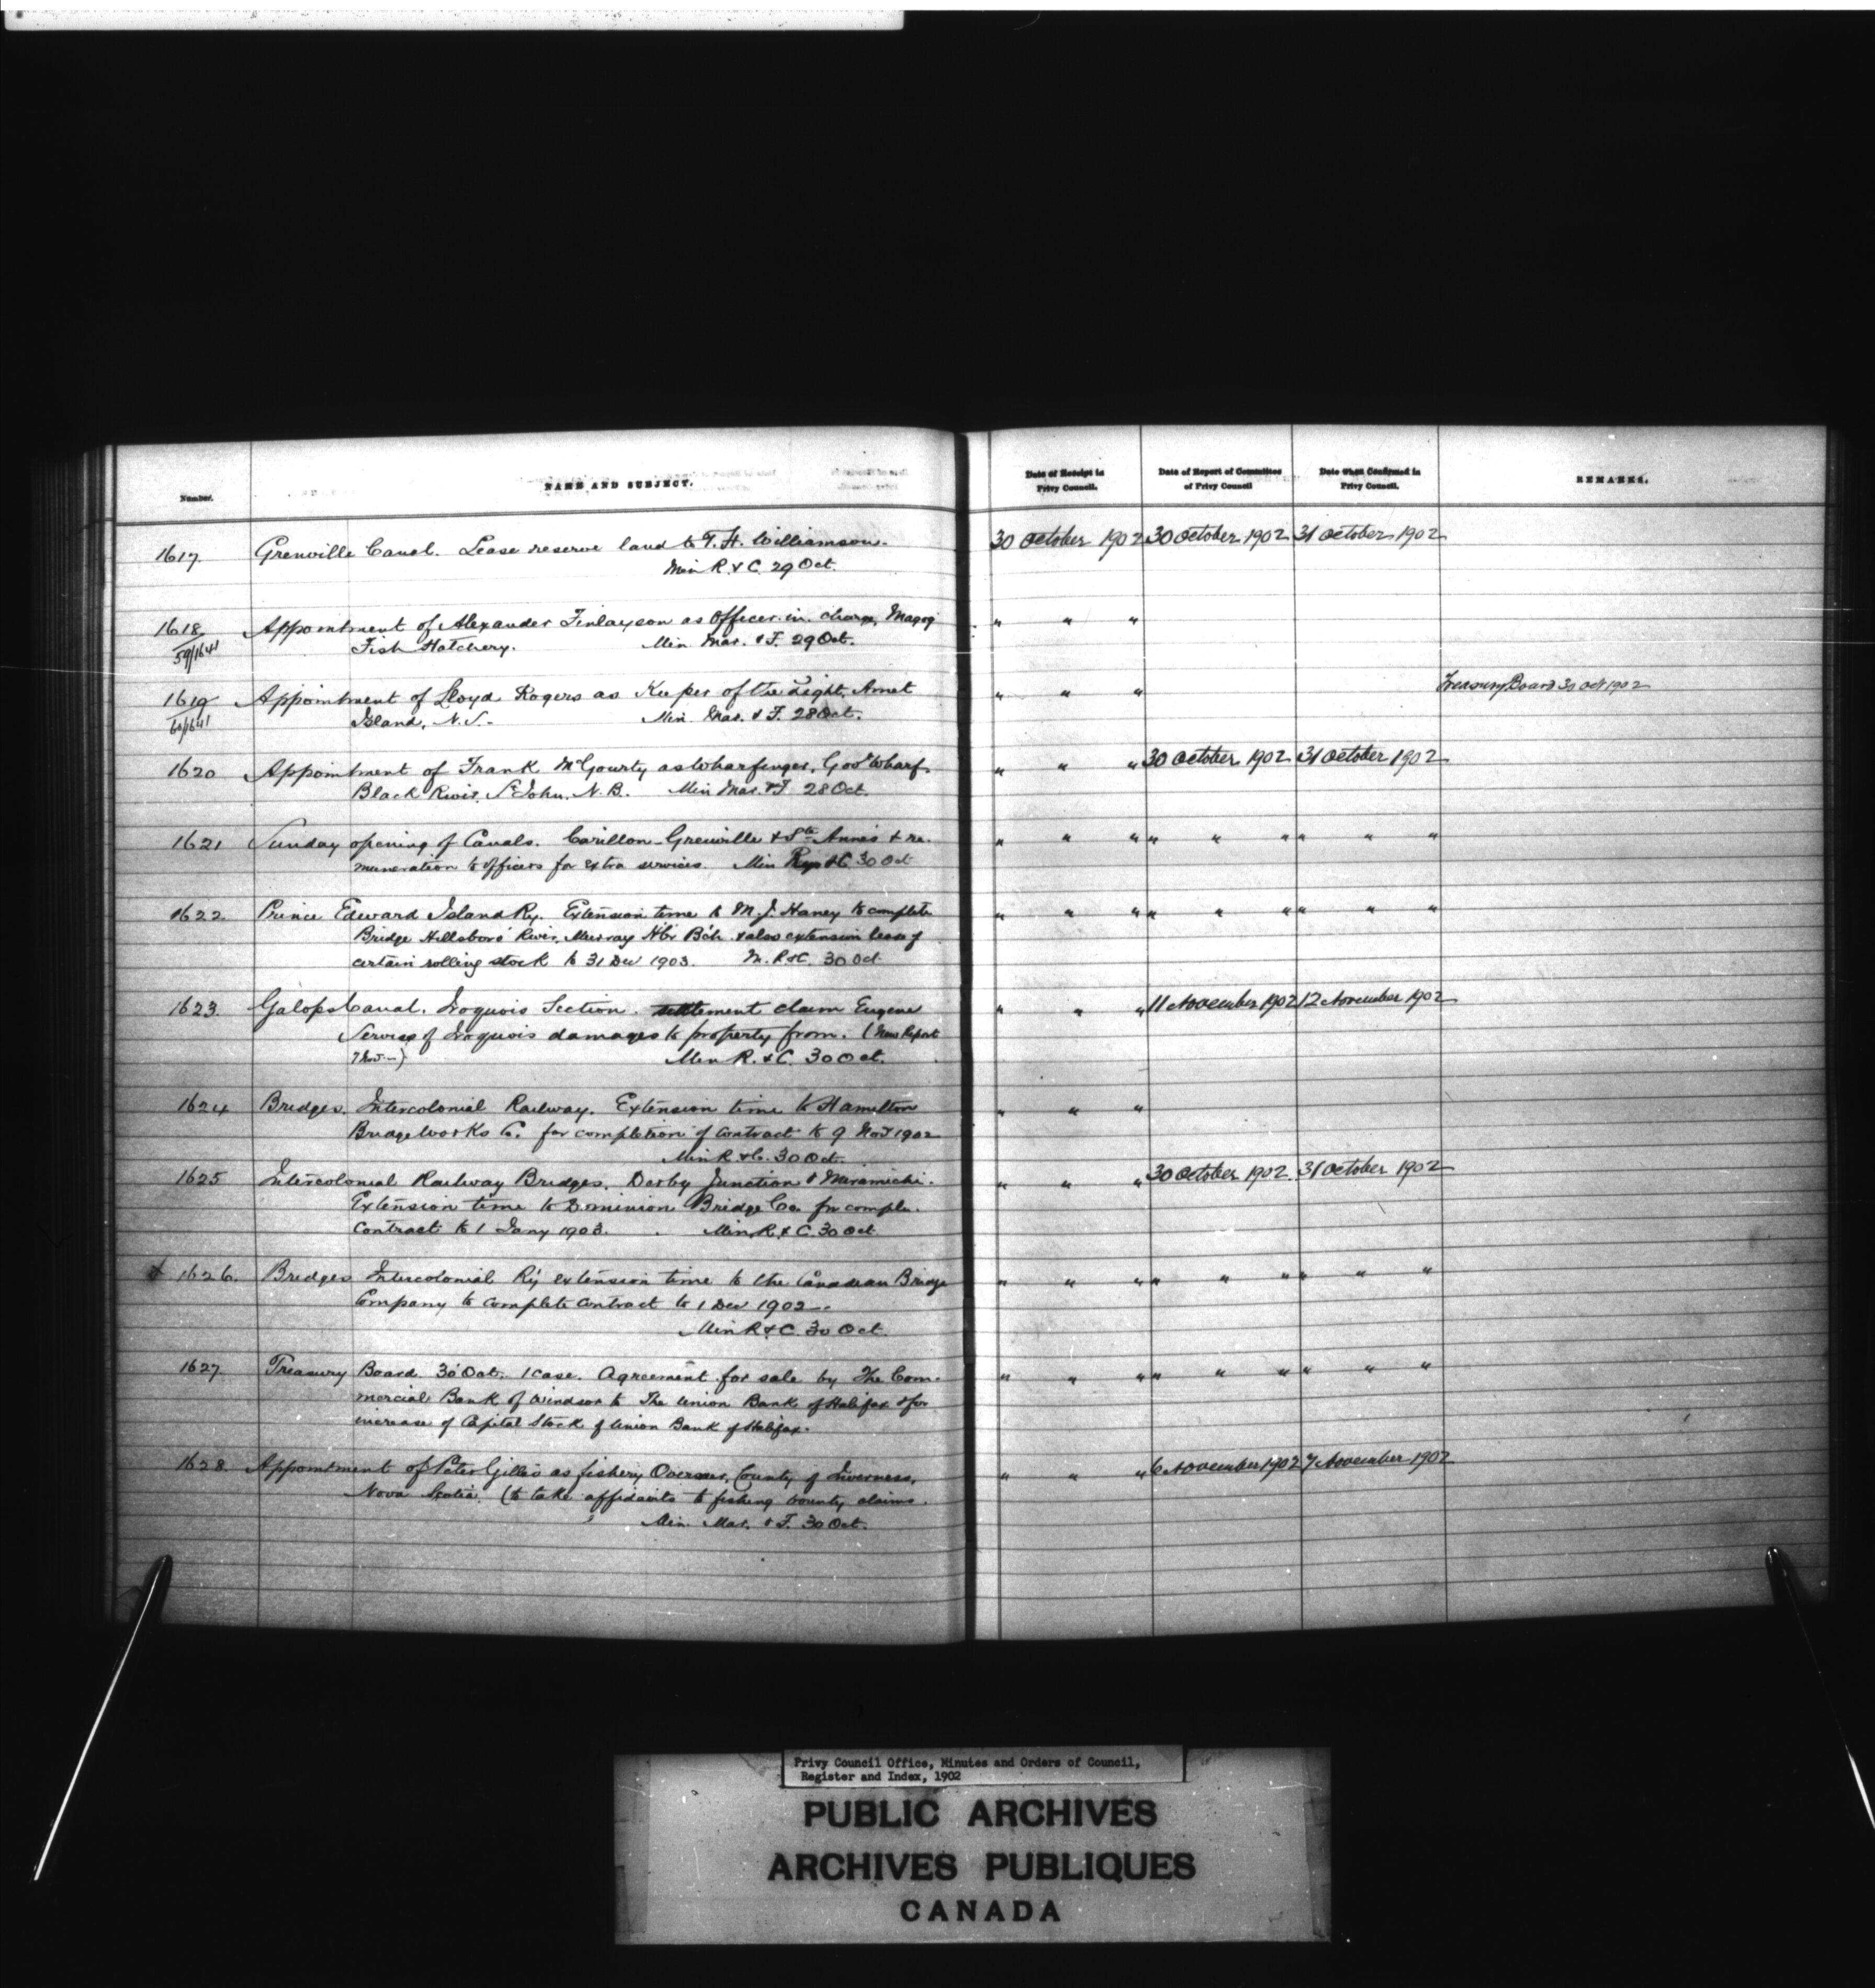 Number.
NAME AND SUBJECT.
Date of Receipt in Privy Council.
Date of Report of Committee of Privy Council
Date When Confirmed in Privy Council.
REMARKS.
1617. Grenville Canal. Lease reserve land to T. H. Williamson. 30 October 1902 30 October 1902 31 October 1902
Min R. & C. 29 Oct.
1618 Appointment of Alexander Finlayson as Officer in charge, Magog " " "
59/1641 Fish Hatchery. Min. Mar. & F. 29 Oct.
1619 Appointment of Lloyd Rogers as Keeper of the Light, Amet " " " Treasury Board 30 Oct 1902
60/1641 Island, N.S. Min. Mar. & F. 28 Oct.
1620 Appointment of Frank McGourty as Wharfinger, Govt Wharf, " " " 30 October 1902 31 October 1902
Black River, St John, N.B. Min Mar. & F 28 Oct.
1621 Sunday opening of Canals. Carillon-Grenville & Ste Anne's & re- " " " " " " " " "
muneration to officers for extra services. Min Rys & C 30 Oct
1622 Prince Edward Island Ry. Extension time to M. J. Haney to complete " " " " " " " " "
Bridge Hillsboro' River, Murray Hbr Bch & also extension lease of
certain rolling stock to 31 Dec 1903. M. R & C. 30 Oct
1623. Galops Canal. Iroquois Section. settlement claim Eugene " " " 11 November 1902 12 November 1902
of Iroquois damages to property from. (New Report
7 Nov—) Min R. & C. 30 Oct.
1624 Bridges. Intercolonial Railway. Extension time to Hamilton " " "
Bridge Works Co. for completion of contract to 9 Novr 1902
Min R & C. 30 Oct.
1625 Intercolonial Railway Bridges, Derby Junction & Miramichi. " " " 30 October 1902. 31 October 1902
Extension time to Dominion Bridge Co. for compln.
Contract to 1 Jany 1903. Min. R. & C. 30 Oct.
1626. Bridges Intercolonial Ry extension time to the Canadian Bridge " " " " " " " " "
Company to complete contract to 1 Dec 1902.
Min R & C. 30 Oct.
1627 Treasury Board 30 Oct. 1 case. Agreement for sale by The Com- " " " " " " " " "
mercial Bank of Windsor to The Union Bank of Halifax & for
increase of Capital Stock of Union Bank of Halifax.
1628. Appointment of Peter Gillis as fishery Overseer, County of Inverness, " " " 6 November 1902 7 November 1902
Nova Scotia. (to take affidavits to fishing bounty claims.
Min. Mar. & F. 30 Oct.
Privy Council Office, Minutes and Orders of Council,
Register and Index, 1902
PUBLIC ARCHIVES
ARCHIVES PUBLIQUES
CANADA